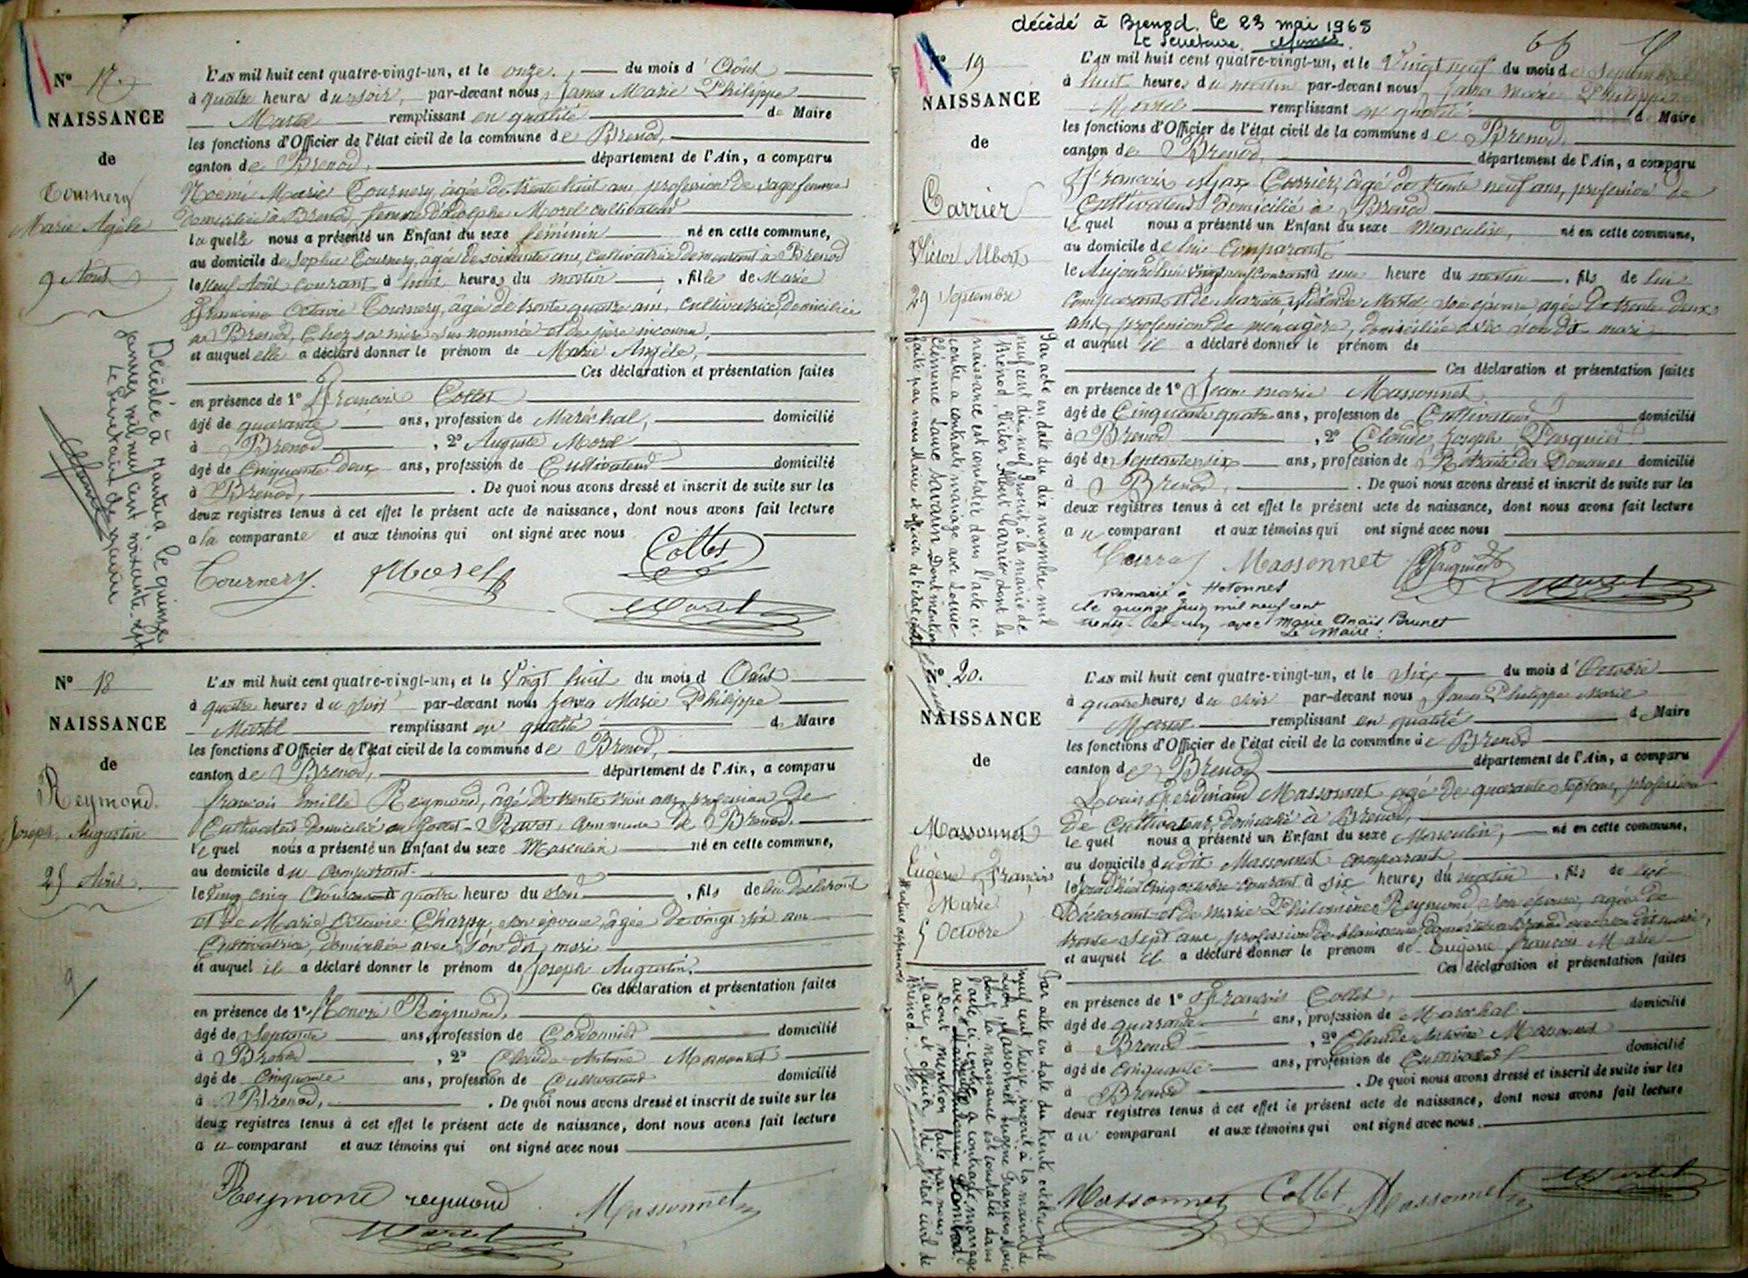 N° 17.
NAISSANCE
de
Tournery
Marie Angèle
9 Août
L'AN mil huit cent quatre-vingt-un, et le onze. du mois d' Août
à quatre heures du soir, par-devant nous Jama Marie Philippe
Martel remplissant en qualité de Maire
les fonctions d'Officier de l'état civil de la commune de Brenod,
canton de Brenod, département de l'Ain, a comparu
Noemi Marie Tournery, âgée de trente huit ans, profession de sage femme
domiciliée à Brenod, femme d'Adolphe Morel cultivateur
laquelle nous a présenté un Enfant du sexe féminin né en cette commune,
au domicile de Sophie Tournery, âgée de soixante ans, cultivatrice demeurant à Brenod
le neuf Août courant à huit heures du matin, fille de Marie
Françoise Octavie Tournery, âgée de trente quatre ans, cultivatrice, domiciliée
à Brenod, chez sa mère sus nommée et de père inconnu,
et auquel elle a déclaré donner le prénom de Marie Angèle,
Ces déclaration et présentation faites
en présence de 1° François Collet
âgé de quarante ans, profession de Maréchal, domicilié
à Brenod, 2° Auguste Morel
âgé de Cinquante deux ans, profession de Cultivateur domicilié
à Brenod, . De quoi nous avons dressé et inscrit de suite sur les
deux registres tenus à cet effet le présent acte de naissance, dont nous avons fait lecture
a la comparante et aux témoins qui ont signé avec nous
Collet
Tournery. Morel
Martel
Décédée à Nantua le quinze
janvier mil neuf cent soixante sept
Le Secrétaire de mairie
N° 18
NAISSANCE
de
Reymond.
Joseph Augustin
25 Août.
9
L'AN mil huit cent quatre-vingt-un, et le Vingt huit du mois d Août
à quatre heures du soir par-devant nous Jama Marie Philippe
Martel remplissant en qualité de Maire
les fonctions d'Officier de l'état civil de la commune de Brenod,
canton de Brenod, département de l'Ain, a comparu
François Emille Reymond, âgé de trente trois ans, profession de
Cultivateur domicilié commune de Brenod.
lequel nous a présenté un Enfant du sexe Masculin né en cette commune,
au domicile du comparant
le Vingt cinq courant à quatre heures du soir, fils de lui déclarant
et de Marie Octavie Charpy, son épouse, âgée de vingt six ans
Cultivatrice, domiciliée avec son dit mari
et auquel il a déclaré donner le prénom de Joseph Augustin.
Ces déclaration et présentation faites
en présence de 1° Honoré Reymond,
âgé de Septante ans, profession de Cordonnier domicilié
à Brenod, 2° Claude Antoine Massonnet
âgé de Cinquante ans, profession de Cultivateur domicilié
à Brenod, . De quoi nous avons dressé et inscrit de suite sur les
deux registres tenus à cet effet le présent acte de naissance, dont nous avons fait lecture
a u comparant et aux témoins qui ont signé avec nous
Reymond reymond Massonnet
Martel
décédé à Brenod. le 23 mai 1965
Le Secrétaire
66
N° 19
NAISSANCE
de
Carrier
Victor Albert
29 Septembre
L'AN mil huit cent quatre-vingt-un, et le Vingt neuf du mois de Septembre
à huit heures du matin par-devant nous Jama Marie Philippe
Martel remplissant en qualité de Maire
les fonctions d'Officier de l'état civil de la commune de Brenod,
canton de Brenod, département de l'Ain, a comparu
François Carrier, âgé de trente neuf ans, profession de
Cultivateur domicilié à Brenod
lequel nous a présenté un Enfant du sexe Masculin, né en cette commune,
au domicile de lui Comparant
le Aujourd'hui vingt neuf courant à une heure du matin, fils de lui
Comparant et de Mariette Martel son épouse âgée de trente deux
ans, profession de ménagère, domiciliée avec son dit mari
et auquel il a déclaré donner le prénom de
Ces déclaration et présentation faites
en présence de 1° Jean Marie Massonnet
âgé de Cinquante quatre ans, profession de Cultivateur domicilié
à Brenod, 2° Claude Joseph Pasquier
âgé de Septante six ans, profession de Retraité des Douanes domicilié
à Brenod, . De quoi nous avons dressé et inscrit de suite sur les
deux registres tenus à cet effet le présent acte de naissance, dont nous avons fait lecture
a u comparant et aux témoins qui ont signé avec nous
Massonnet Pasquier
Martel
Remarié à Hotonnes
le quinze juin mil neuf cent
trente avec Marie Anaïs Brunet
Le Maire :
Par acte en date du dix novembre mil
neuf cent dix neuf, inscrit à la mairie de
Brénod, Victor Albert Carrier dont la
naissance est constatée dans l'acte ci-
contre a contracté mariage avec Louise
Clémence Laure Savarin. Dont mention
faite par nous Maire et officier de l'état civil
N° 20.
NAISSANCE
de
Massonnet
Eugène François
Marie
5 Octobre
L'AN mil huit cent quatre-vingt-un, et le six du mois d' Octobre
à quatre heures du soir par-devant nous Jama Philippe Marie
Martel remplissant en qualité de Maire
les fonctions d'Officier de l'état civil de la commune de Brenod
canton de Brenod département de l'Ain, a comparu
Louis Ferdinand Massonnet âgé de quarante sept ans, profession
de Cultivateur, domicilié à Brenod,
lequel nous a présenté un Enfant du sexe Masculin, né en cette commune,
au domicile dudit Massonnet comparant
le cinq octobre courant à six heures du matin, fils de lui
Déclarant et de Marie Philomène Reymond son épouse, âgée de
trente sept ans, profession de domiciliée à Brenod avec son dit mari,
et auquel il a déclaré donner le prénom de Eugène François Marie
Ces déclaration et présentation faites
en présence de 1° François Collet,
âgé de quarante ans, profession de Maréchal domicilié
à Brenod, 2° Claude Antoine Massonnet
âgé de cinquante ans, profession de Cultivateur domicilié
à Brenod . De quoi nous avons dressé et inscrit de suite sur les
deux registres tenus à cet effet le présent acte de naissance, dont nous avons fait lecture
a u comparant et aux témoins qui ont signé avec nous.
Massonnet Collet Massonnet
Martel
Par acte en date du trente octobre mil
neuf cent treize, inscrit à la mairie de
Lyon, Massonnet Eugène François Marie
dont la naissance est constatée dans
l'acte ci-contre, a contracté mariage
avec
Dont mention faite par nous
Maire et officier de l'état civil de
Brénod.